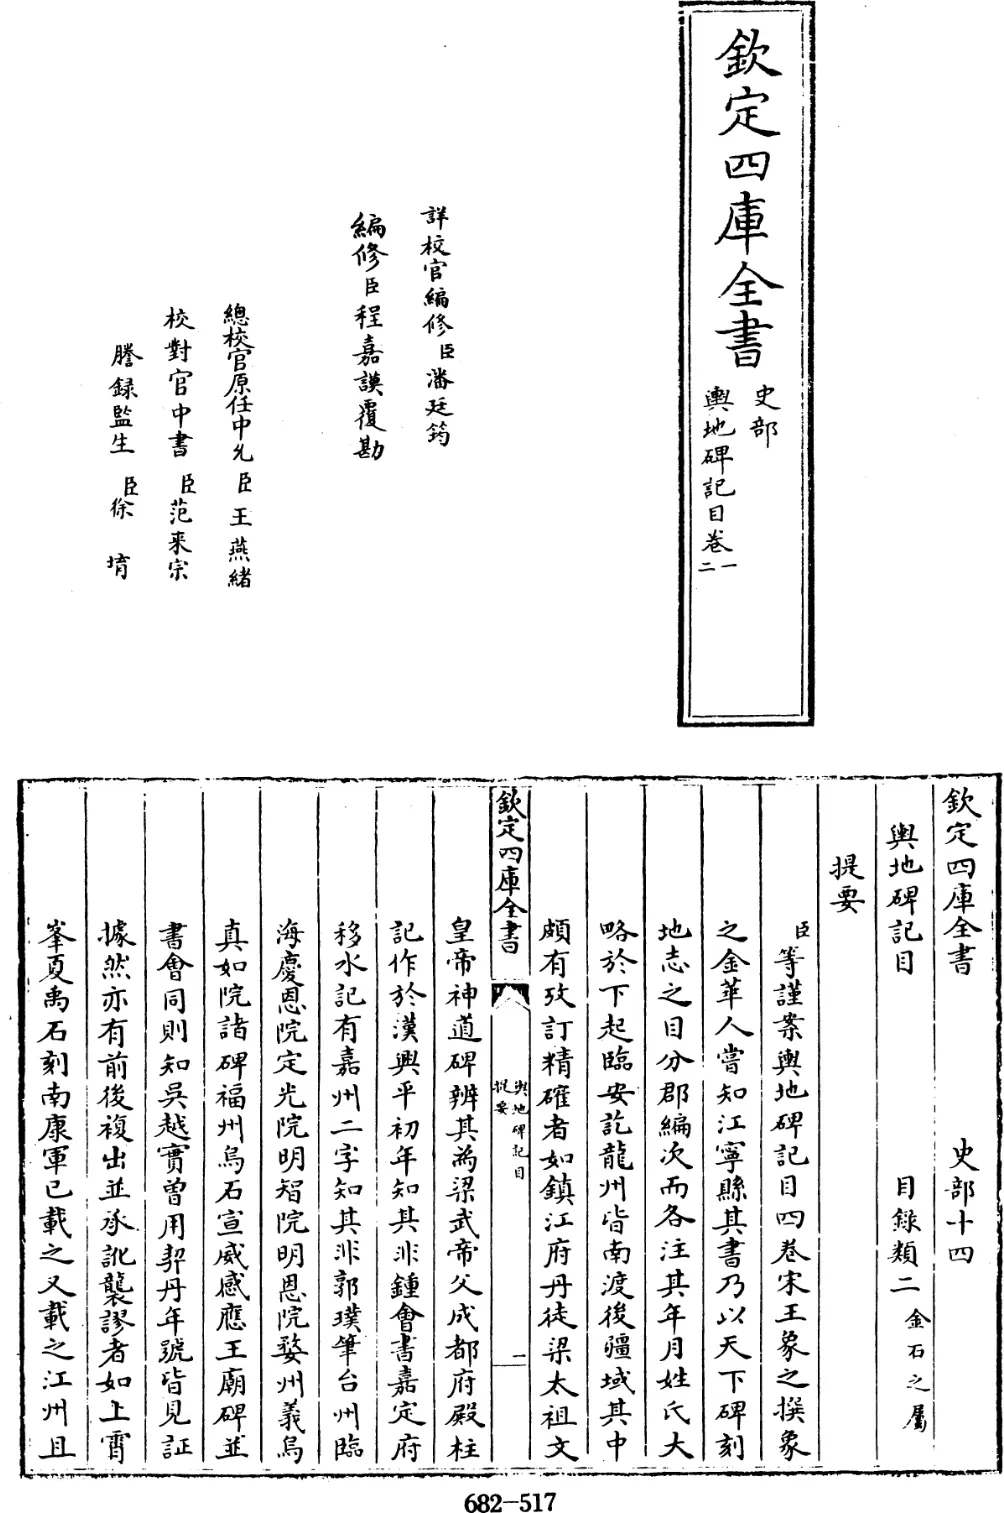 欽定四庫全書
史部
輿地碑記目卷一
二
詳校官編修臣潘廷筠
編修臣程嘉謨覆勘
總校官原任中允臣王燕緒
校對官中書臣范来宗
謄録監生臣徐堉
欽定四庫全書 史部十四
輿地碑記目 目録類二金石之屬
提要
臣等謹案輿地碑記目四卷宋王象之撰象
之金華人嘗知江寧縣其書乃以天下碑刻
地志之目分郡編次而各注其年月姓氏大
略於下起臨安訖龍州皆南渡後疆域其中
頗有攷訂精確者如鎮江府丹徒梁太祖文
欽定四庫全書
輿地碑記目
提要
一
皇帝神道碑辨其為梁武帝父成都府殿柱
記作於漢興平初年知其非鍾會書嘉定府
移水記有嘉州二字知其非郭璞筆台州臨
海慶恩院定光院明智院明恩院婺州義烏
真如院諸碑福州烏石宣威感應王廟碑並
書會同則知吳越實曾用契丹年號皆見証
據然亦有前後複出並承訛襲謬者如上霄
峯夏禹石刻南康軍已載之又載之江州且
682-517